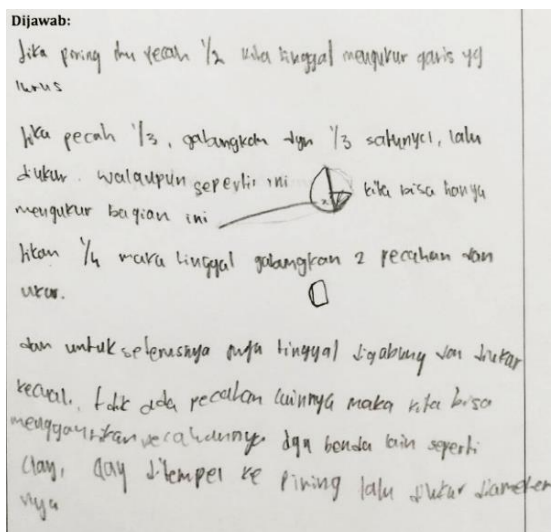 Dijawab:
Jika piring itu pecah 1/2 kita tinggal mengukur garis yg
lurus
Jika pecah 1/3, gabungkan dgn 1/3 satunya, lalu
diukur. walaupun seperti ini kita bisa hanya
mengukur bagian ini
Jikan 1/4 maka tinggal gabungkan 2 pecahan dan
ukur.
dan untuk seterusnya juga tinggal digabung dan diukur
kecuali, tdk ada pecahan lainnya maka kita bisa
menggantikan pecahannya dgn benda lain seperti
clay, clay ditempel ke piring lalu diukur diameter
nya